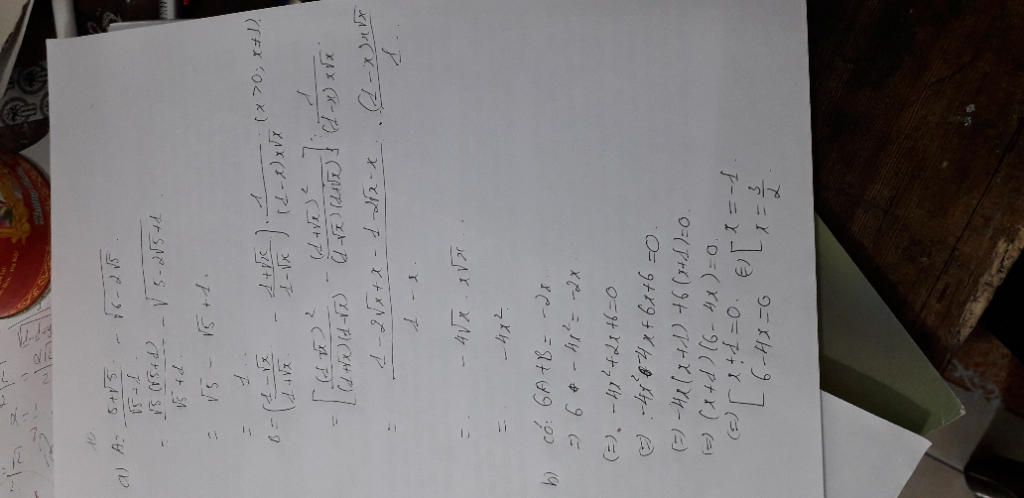 10.
a) A = (5+√5)/(√5-1) - √(6-2√5)
= √5(√5+1)/(√5+1) - √(5-2√5+1)
= √5 - √5+1.
= 1
B = ((1-√x)/(1+√x) - (1+√x)/(1-√x)) : 1/((1-x)x√x) (x>0; x≠1).
= [(1-√x)²/((1+√x)(1-√x)) - (1+√x)²/((1-√x)(1+√x))] : 1/((1-x)x√x)
= (1-2√x+x-1-2√x-x)/(1-x) . ((1-x)x√x)/1
= -4√x . x√x.
= -4x².
b) có: 6A+B = -2x.
=) 6 - 4x² = -2x.
(=) -4x²+2x+6=0
(=) -4x²-4x+6x+6=0.
(=) -4x(x+1)+6(x+1)=0.
(=) (x+1)(6-4x)=0.
(=) [ x+1=0.
6-4x=0 (=) [ x=-1.
x=3/2